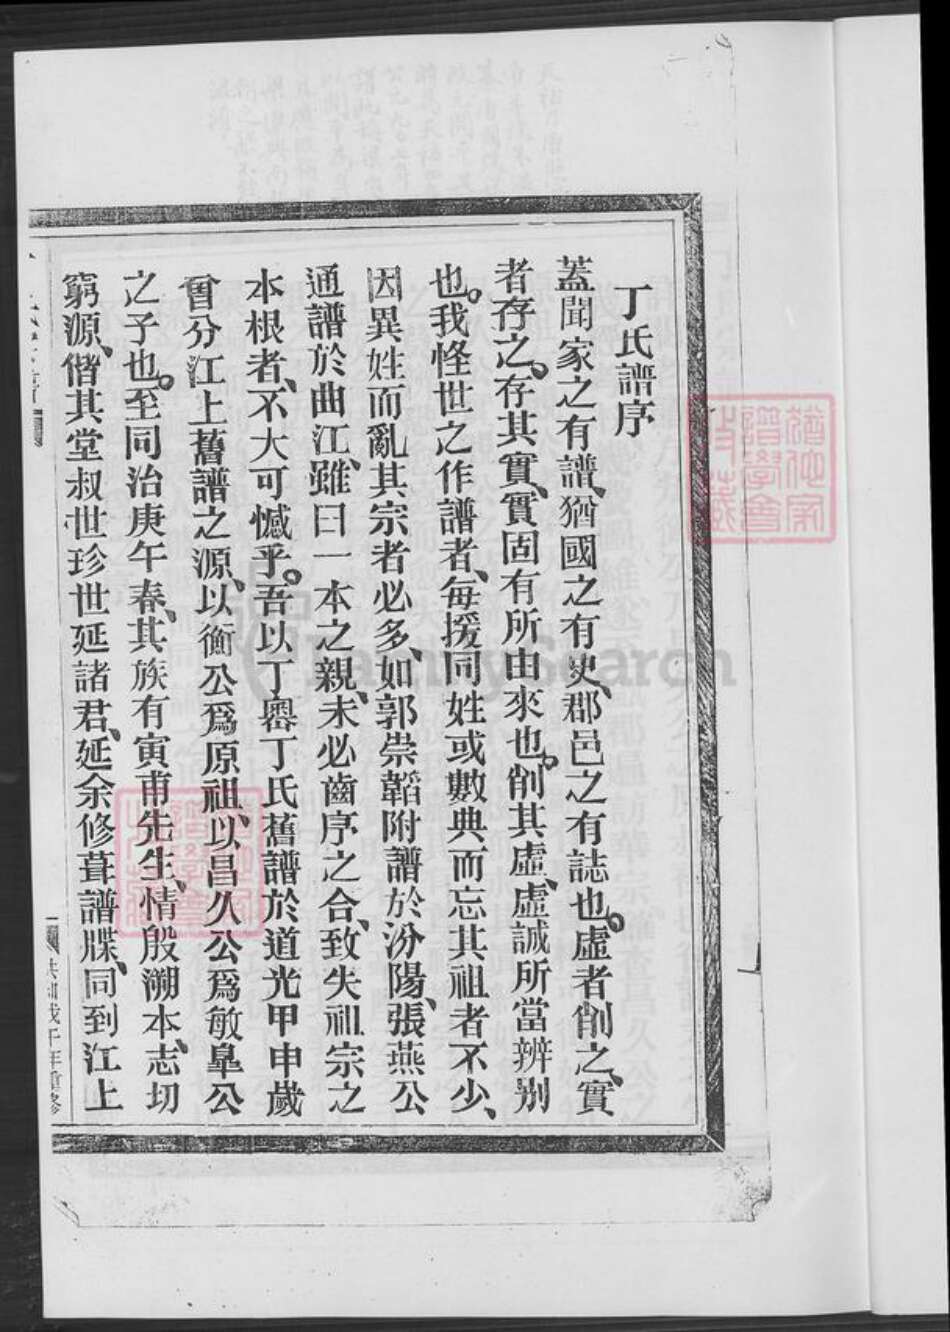 丁氏譜序
蓋聞家之有譜、猶國之有史、郡邑之有誌也。虛者削之、實
者存之。存其實、實固有所由來也。削其虛、虛誠所當辨別
也。我怪世之作譜者、每援同姓或數典而忘其祖者不少、
因異姓而亂其宗者必多、如郭崇韜附譜於汾陽、張燕公
通譜於曲江、雖曰一本之親、未必齒序之合、致失祖宗之
本根者、不大可憾乎。吾以丁嶴丁氏舊譜於道光甲申歲
曾分江上舊譜之源、以衡公爲原祖、以昌久公爲敏皐公
之子也。至同治庚午春、其族有寅甫先生、情殷溯本、志切
窮源、偕其堂叔世珍世延諸君、延余修葺譜牒、同到江上
戊午年重修
譜學會
收藏
FamilySearch